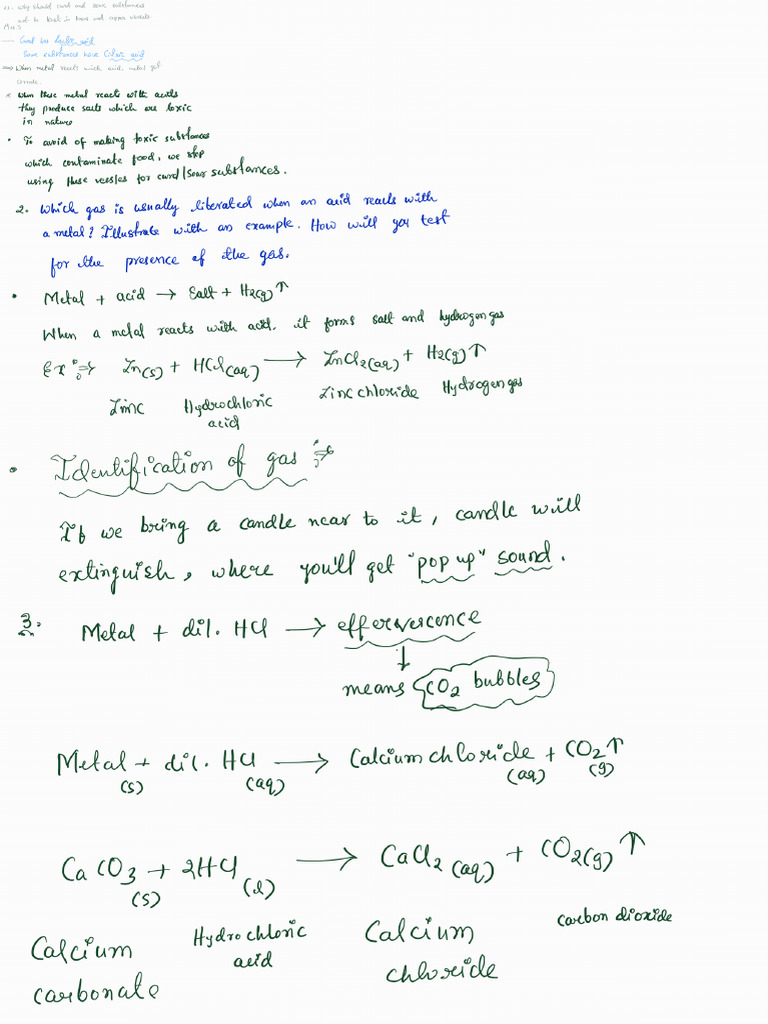 why should curd and sour substances
not be kept in brass and copper vessels
Ans
Curd has lactic acid
Sour substances have Citric acid
When metal reacts with acid, metal get
corrode.
* When these metal reacts with acids
they produce salts which are toxic
in nature
• To avoid of making toxic substances
which contaminate food, we stop
using these vessles for curd/sour substances.
2. Which gas is usually literated when an acid reacts with
a metal? Illustrate with an example. How will you test
for the presence of the gas.
• Metal + acid → Salt + H2(g) ↑
When a metal reacts with acid. it forms salt and hydrogen gas
Ex ⇒ Zn(s) + HCl(aq) → ZnCl2(aq) + H2(g) ↑
Zinc Hydrochloric acid Zinc chloride Hydrogen gas
• Identification of gas ⇒
If we bring a candle near to it, candle will
extinguish, where you'll get "pop up" sound.
3. Metal + dil. HCl → effervescence
↓
means CO2 bubbles
Metal(s) + dil. HCl(aq) → Calcium chloride(aq) + CO2(g) ↑
CaCO3(s) + 2HCl(l) → CaCl2(aq) + CO2(g) ↑
Calcium carbonate Hydrochloric acid Calcium chloride carbon dioxide